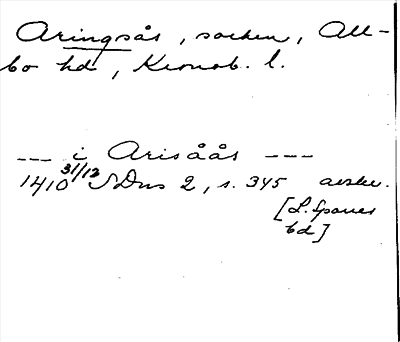 Aringsås, socken, All-
bo hd, Kronob. l.
--- i Arisåås ---
1410 31/12 SDns 2, s. 345 avskr.
[L. Sparres
bd]